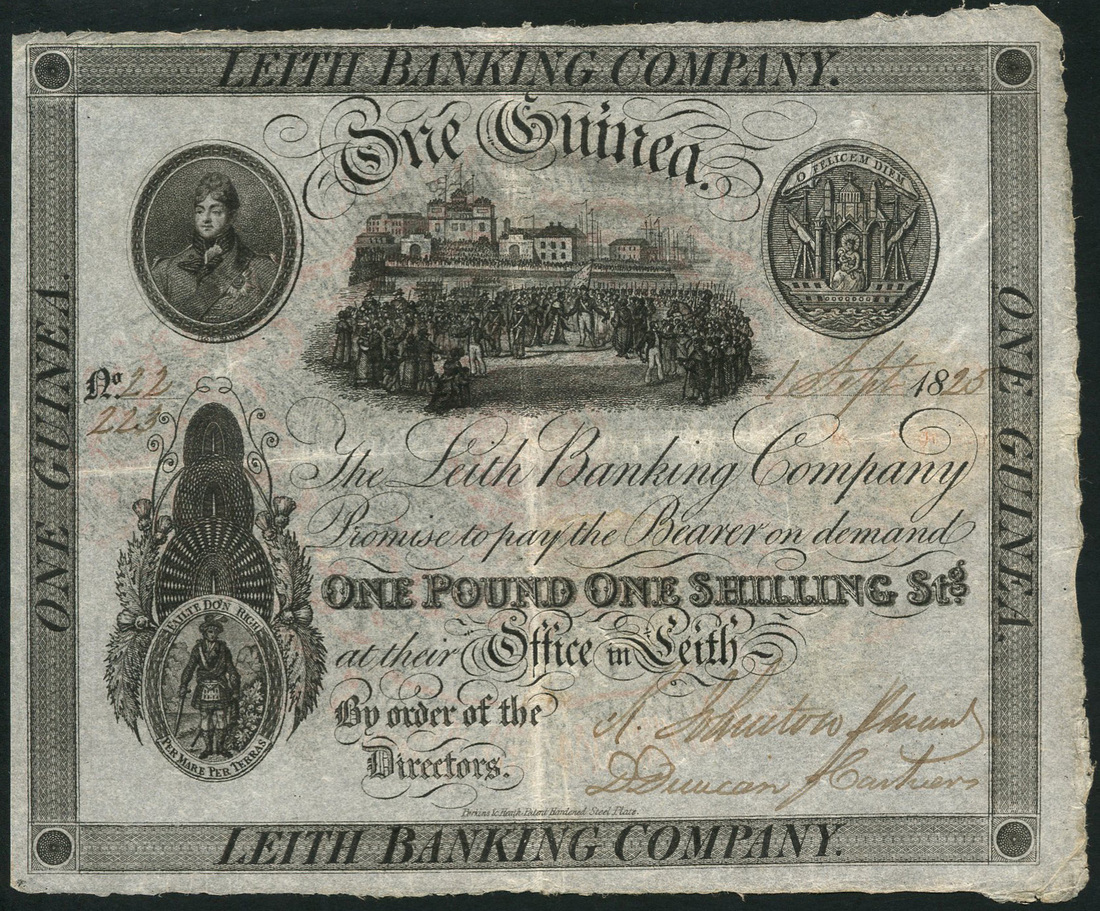 LEITH BANKING COMPANY.
One Guinea.
O FELICEM DIEM
ONE GUINEA.
ONE GUINEA.
No 22
223
1 Sept 1825
The Leith Banking Company
Promise to pay the Bearer on demand
ONE POUND ONE SHILLING Stg.
at their Office in Leith
FAILTE DO'N RIGH
PER MARE PER TERRAS
By order of the
Directors.
D Duncan
Perkins & Heath Patent Hardened Steel Plate.
LEITH BANKING COMPANY.